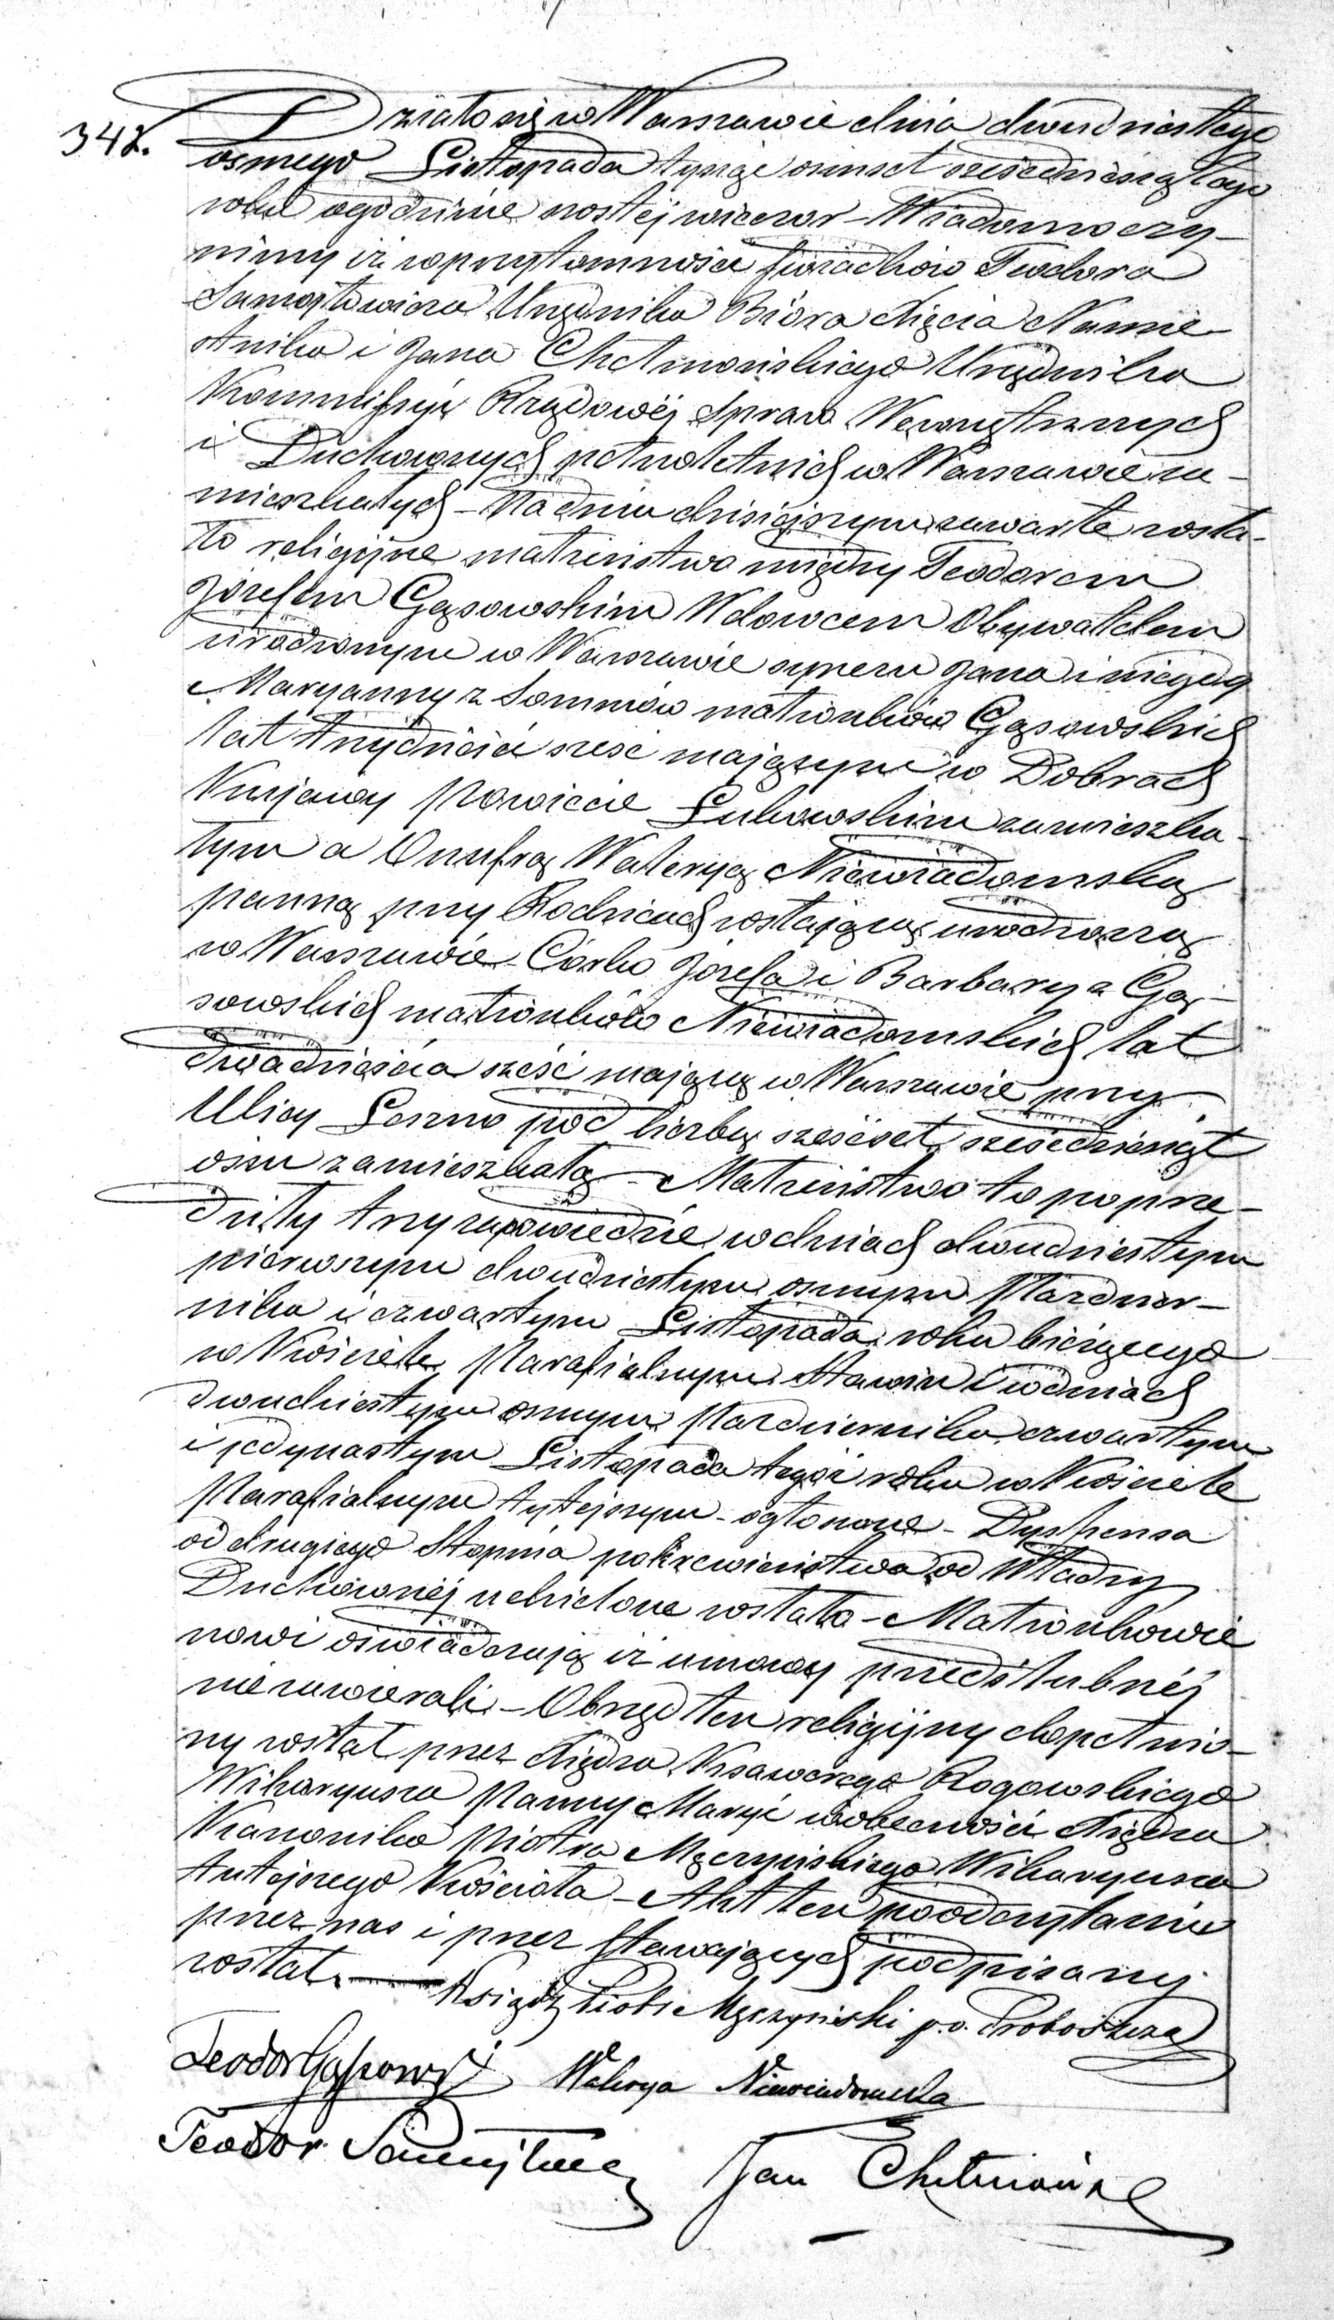 342.
Działo się w Warszawie dnia dwudziestego
osmego Listopada tysiąc ośmset sześćdziesiątego
roku o godzinie szóstej wieczór – Wiadomo czy-
nimy iż w przytomności świadków Teodora
Urzędnika Bióra Xięcia Namie
stnika i Jana Chełmońskiego Urzędnika
Kommissyi Rządowéj Spraw Wewnętrznych
i Duchownych pełnoletnich w Warszawie za-
mieszkałych – Na dniu dzisiejszym zawarte zosta-
ło religijne małżeństwo między Teodorem
Józefem Gąsowskim Wdowcem Obywatelem
urodzonym w Warszawie synem Jana i niegdy
Maryanny z małżonków Gąsowskich
lat trzydzieści sześć mającym w Dobrach
Kujawy Powiecie Łukowskim zamieszka-
łym a Onufrą Waleryą Niewiadomską
panną przy Rodzicach zostającą urodzoną
w Warszawie Córką Józefa i Barbary z Gą-
sowskich małżonków Niewiadomskich lat
dwadzieścia sześć mającą w Warszawie przy
Ulicy Leszno pod liczbą sześćset sześćdziesiąt
ośm zamieszkałą – Małżeństwo to poprze-
dziły trzy zapowiedzie w dniach dwudziestym
pierwszym dwudziestym osmym Paździer-
nika i czwartym Listopada roku bieżącego
w Kościele Parafialnym Stanin i w dniach
dwudziestym osmym Października czwartym
i jedynastym Listopada tegoż roku w Kościele
Parafialnym tutejszym – ogłoszone – Dyspensa
od drugiego Stopnia pokrewieństwa od Władzy
Duchownéj udzielone została – Małżonkowie
nowi oświadczają iż umowy przedślubnéj
nie zawierali – Obrzęd ten religijny dopełnio-
ny został przez Xiędza Ksawerego Rogowskiego
Wikaryusza Panny Maryi w obecności Xiędza
Kanonika Piotra Męczyńskiego Wikaryusza
tutejszego Kościoła – Akt ten po odczytaniu
przez nas i przez stawających podpisany
został. Ksiądz Piotr Męczyński p.o. Proboszcza
Teodor Gąsowski Walerya Niewiadomska
Teodor Jan Chełmoński